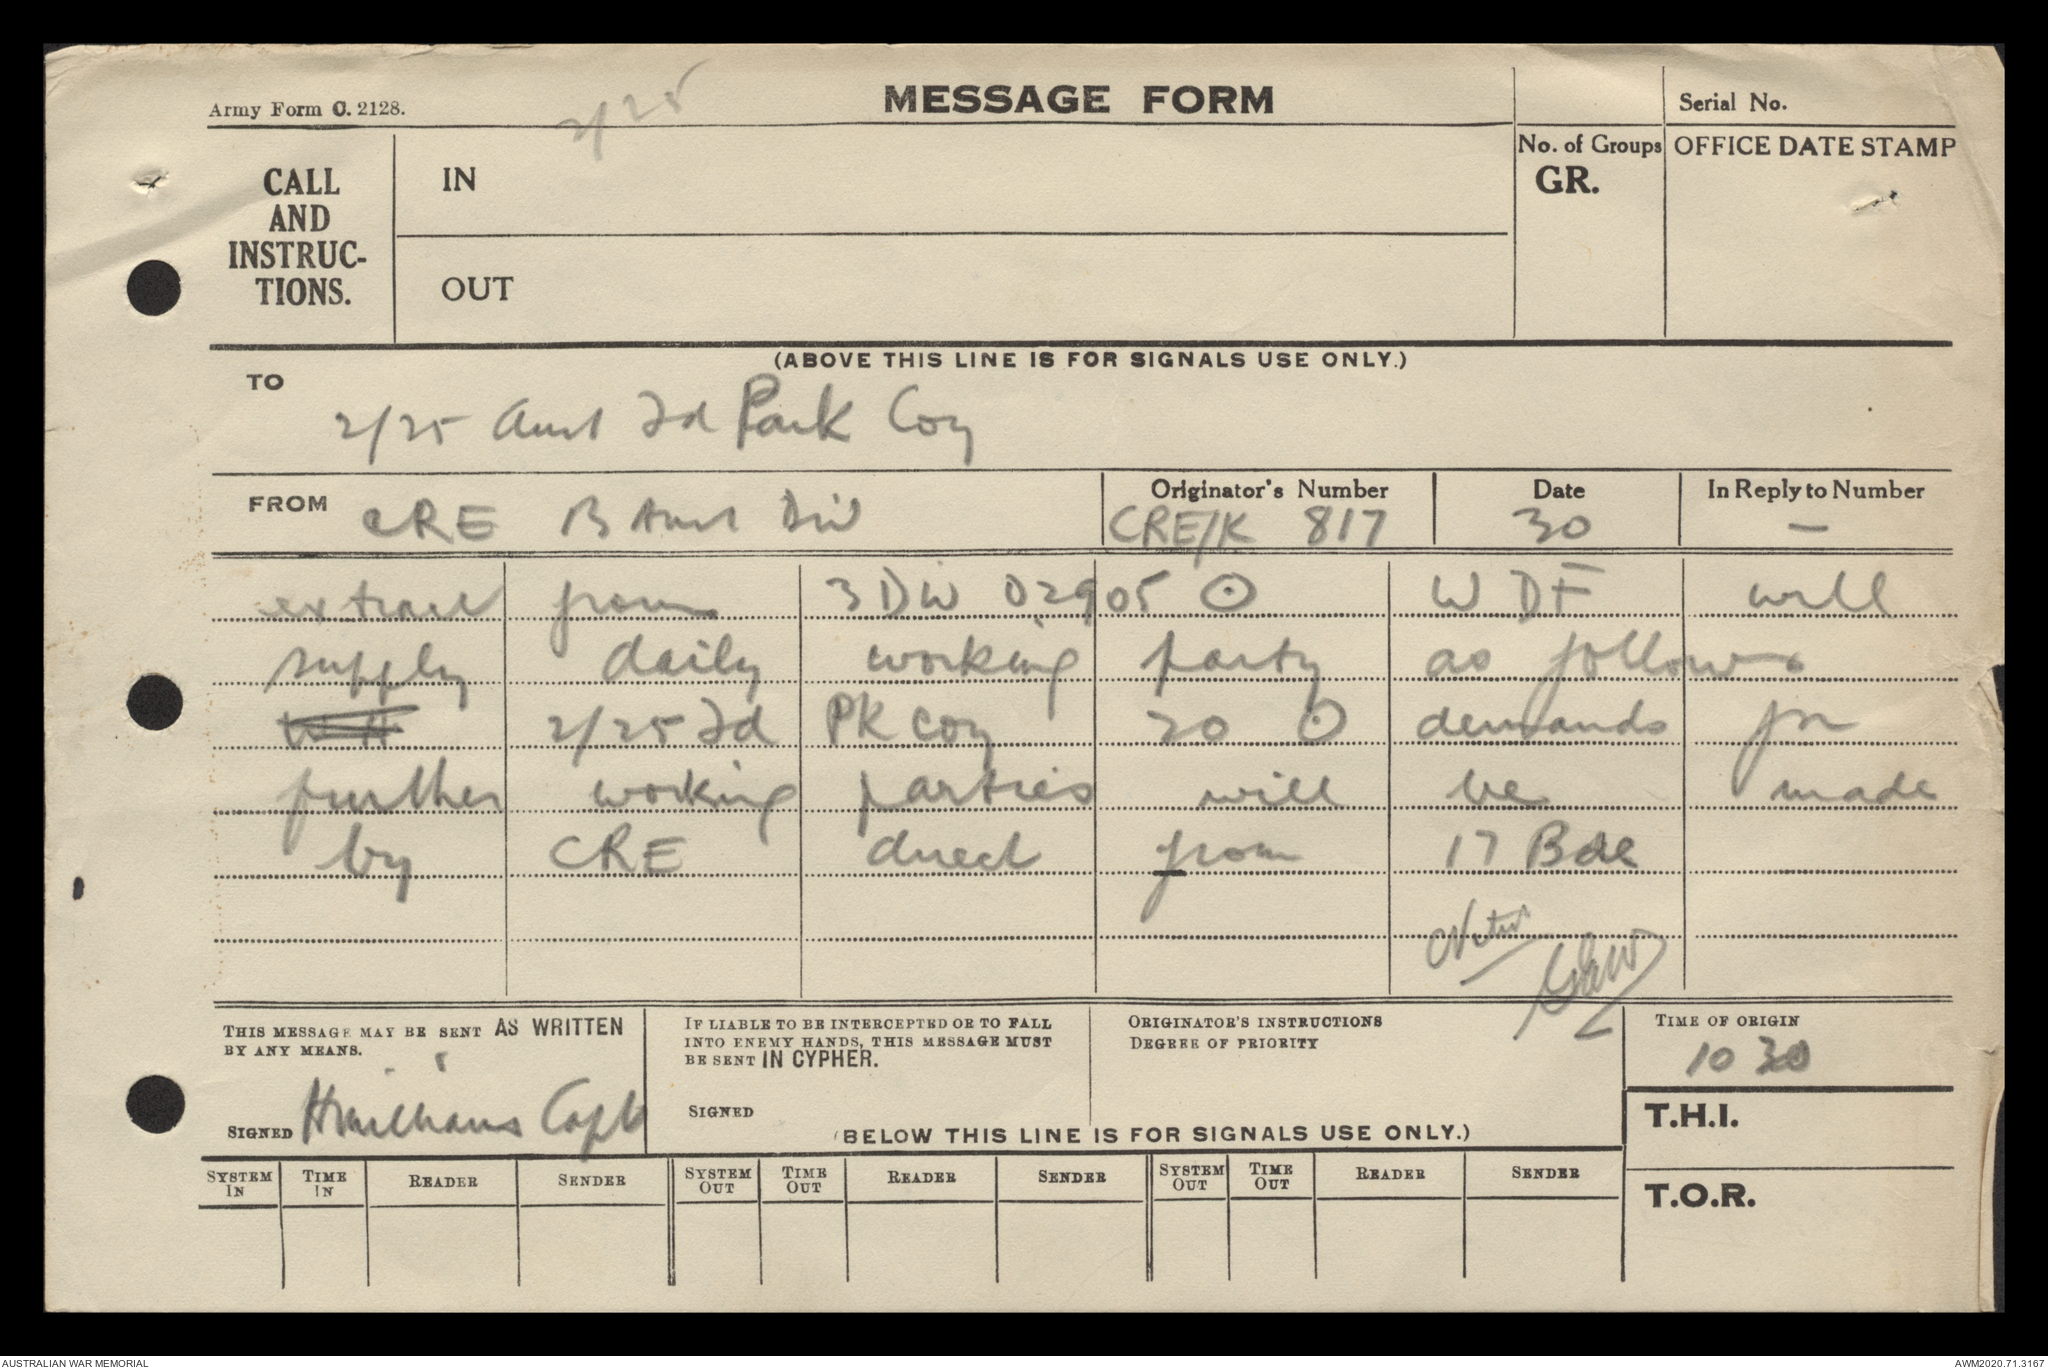 Army Form C. 2128.
2/25
MESSAGE FORM
Serial No.
CALL AND INSTRUC- TIONS.
IN
OUT
No. of Groups GR.
OFFICE DATE STAMP
(ABOVE THIS LINE IS FOR SIGNALS USE ONLY.)
TO
2/25 Aust Fd Park Coy
FROM CRE B Aust Div
Originator's Number CRE/K 817
Date 30
In Reply to Number —
extract from 3 DW 02905 ⊙ WDF will
supply daily working party as follows
2/25 Fd PK coy 20 ⊙ demands for
further working parties will be made
by CRE direct from 17 Bde
THIS MESSAGE MAY BE SENT AS WRITTEN BY ANY MEANS.
SIGNED HWilliams Capt
IF LIABLE TO BE INTERCEPTED OR TO FALL INTO ENEMY HANDS, THIS MESSAGE MUST BE SENT IN CYPHER.
SIGNED
ORIGINATOR'S INSTRUCTIONS DEGREE OF PRIORITY
TIME OF ORIGIN
10 30
T.H.I.
(BELOW THIS LINE IS FOR SIGNALS USE ONLY.)
SYSTEM IN TIME IN READER SENDER SYSTEM OUT TIME OUT READER SENDER SYSTEM OUT TIME OUT READER SENDER
T.O.R.
AUSTRALIAN WAR MEMORIAL
AWM2020.71.3167